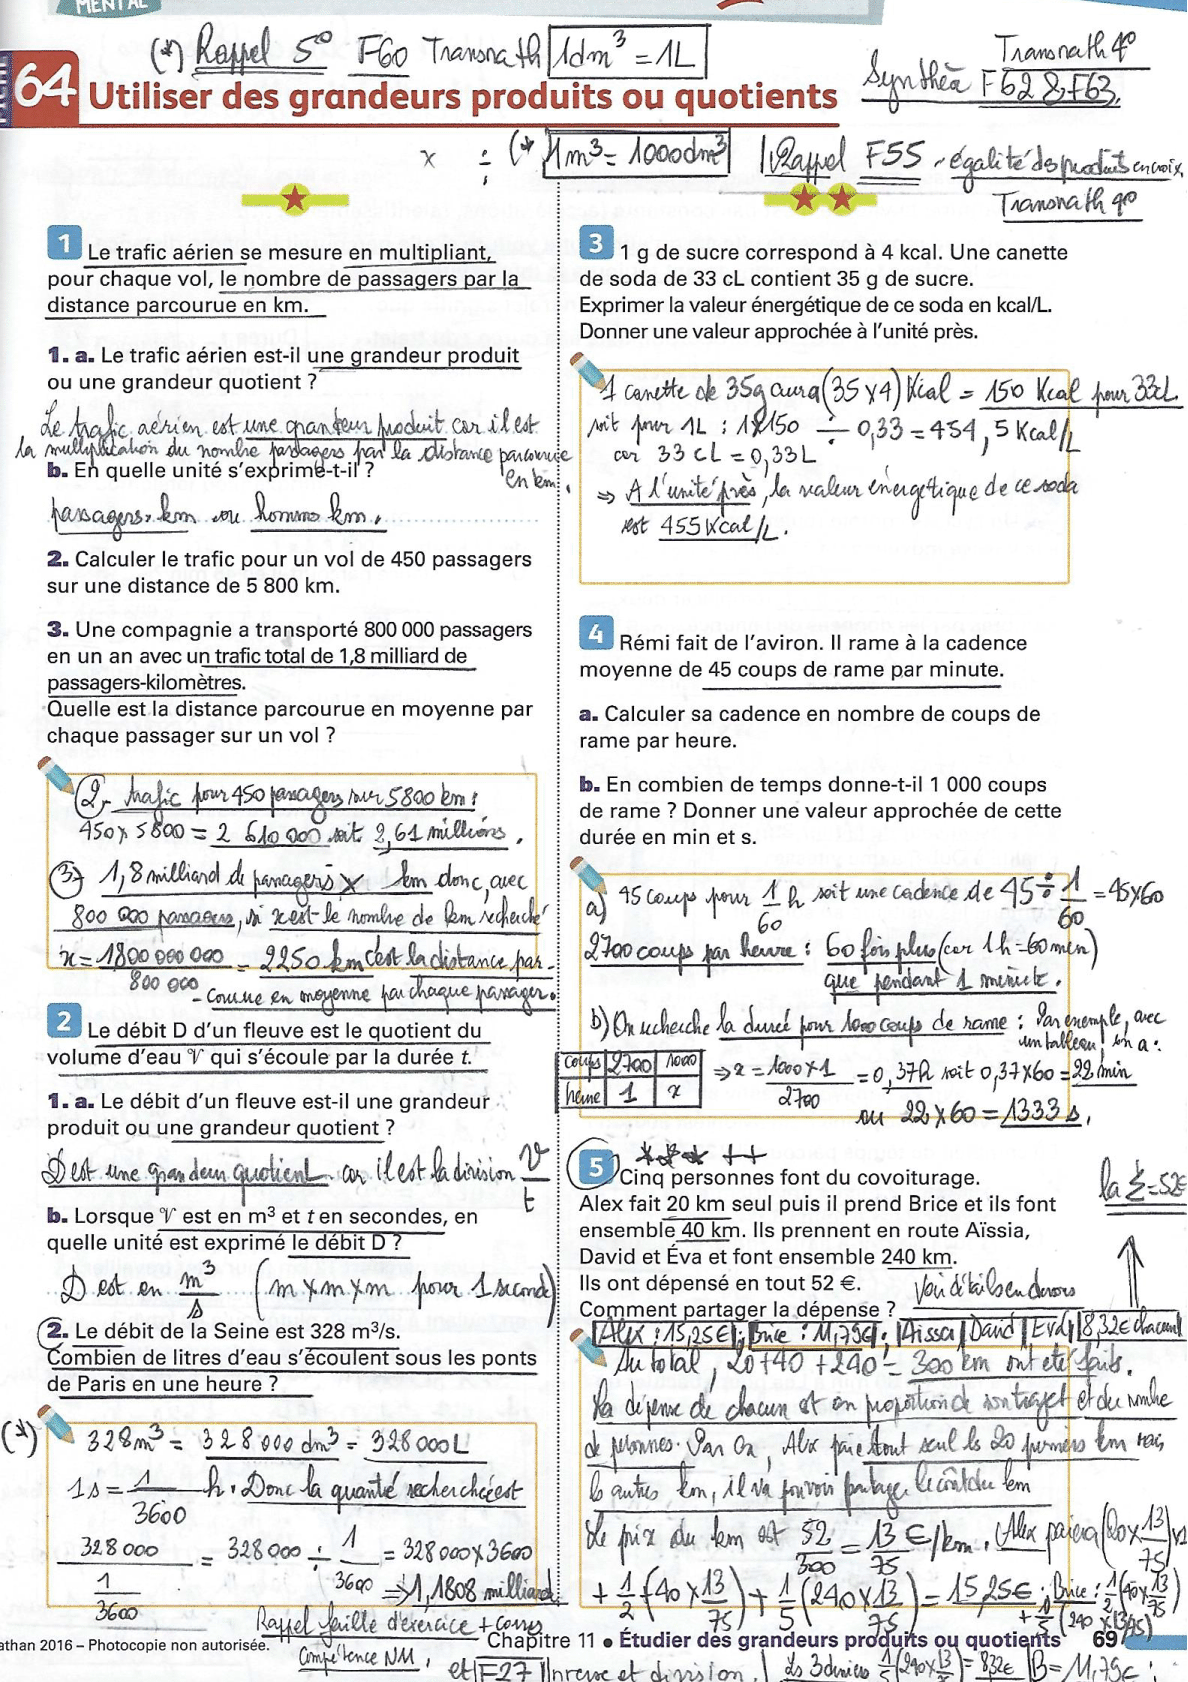 MENTAL
(*) Rappel 5° F60 Transmath 1dm³ = 1L
Transmath 4°
64 Utiliser des grandeurs produits ou quotients
F62 & F63.
x ÷ (* 1m³ = 1000dm³ Rappel F55 - égalité des produits en croix
Transmath 4°
1 Le trafic aérien se mesure en multipliant,
pour chaque vol, le nombre de passagers par la
distance parcourue en km.
1. a. Le trafic aérien est-il une grandeur produit
ou une grandeur quotient ?
Le trafic aérien est une grandeur produit car il est
la multiplication du nombre passagers par la distance parcourue
en km.
b. En quelle unité s'exprime-t-il ?
passagers. km ou hommes km.
2. Calculer le trafic pour un vol de 450 passagers
sur une distance de 5 800 km.
3. Une compagnie a transporté 800 000 passagers
en un an avec un trafic total de 1,8 milliard de
passagers-kilomètres.
Quelle est la distance parcourue en moyenne par
chaque passager sur un vol ?
2,- trafic pour 450 passagers sur 5800 km :
450 x 5800 = 2 610 000 soit 2,61 millions.
3) 1,8 milliard de passagers x km donc, avec
800 000 passagers, si x est le nombre de km recherché
x = 1800 000 000 / 800 000 = 2250 km c'est la distance par-
-courue en moyenne par chaque passager.
2 Le débit D d'un fleuve est le quotient du
volume d'eau V qui s'écoule par la durée t.
1. a. Le débit d'un fleuve est-il une grandeur
produit ou une grandeur quotient ?
D est une grandeur quotient car il est la division V/t
b. Lorsque V est en m³ et t en secondes, en
quelle unité est exprimé le débit D ?
D est en m³/s (m x m x m pour 1 seconde)
2. Le débit de la Seine est 328 m³/s.
Combien de litres d'eau s'écoulent sous les ponts
de Paris en une heure ?
(*) 328m³ = 328 000 dm³ = 328 000 L
1s = 1/3600 h. Donc la quantité recherchée est
328 000 / (1/3600) = 328 000 ÷ 1/3600 = 328 000 x 3600
⇒ 1,1808 milliard
Rappel feuille d'exercice + cours
Compétence NM.
3 1 g de sucre correspond à 4 kcal. Une canette
de soda de 33 cL contient 35 g de sucre.
Exprimer la valeur énergétique de ce soda en kcal/L.
Donner une valeur approchée à l'unité près.
1 canette de 35g aura (35 x 4) Kcal = 150 Kcal pour 33cL
soit pour 1L : 1 x 150 ÷ 0,33 = 454,5 Kcal/L
car 33 cL = 0,33L
⇒ A l'unité près, la valeur énergétique de ce soda
est 455 Kcal/L.
4 Rémi fait de l'aviron. Il rame à la cadence
moyenne de 45 coups de rame par minute.
a. Calculer sa cadence en nombre de coups de
rame par heure.
b. En combien de temps donne-t-il 1 000 coups
de rame ? Donner une valeur approchée de cette
durée en min et s.
a) 45 coups pour 1/60 h soit une cadence de 45 ÷ 1/60 = 45 x 60
2700 coups par heure : 60 fois plus (car 1h = 60 min)
que pendant 1 minute.
b) On recherche la durée pour 1000 coups de rame : Par exemple, avec
un tableau on a :
coups 2700 1000
heure 1 x
⇒ x = 1000 x 1 / 2700 = 0,37h soit 0,37 x 60 = 22 min
ou 22 x 60 = 1333 s.
5 Cinq personnes font du covoiturage.
Alex fait 20 km seul puis il prend Brice et ils font
ensemble 40 km. Ils prennent en route Aïssia,
David et Éva et font ensemble 240 km.
Ils ont dépensé en tout 52 €.
Comment partager la dépense ?
la Σ = 52€
Alex : 15,25€ ; Brice : 11,75€ ; Aissa David Eva 8,32€ chacun
Au total, 20 + 40 + 240 = 300 km ont été faits.
la dépense de chacun est en proportion de son trajet et du nombre
de personnes. Par ex, Alex paie tout seul les 20 premiers km mais
les autres km, il va pouvoir partager le coût du km
Le prix du km est 52/300 = 13/75 €/km. Alex paiera (20 x 13/75) x 1
+ 1/2 (40 x 13/75) + 1/5 (240 x 13/75) = 15,25€ ; Brice : 1/2 (40 x 13/75)
+ 1/5 (240 x 13/75)
athan 2016 – Photocopie non autorisée.
Chapitre 11 • Étudier des grandeurs produits ou quotients 69
et F27 Inverse et division.
Les 3 derniers 1/5 (240 x 13/75) = 8,32€ B = 11,75€ ;